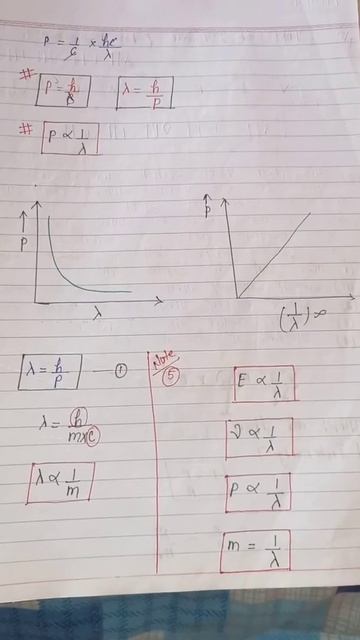 P = 1/c × hc/λ
# P = h/λ λ = h/P
# P ∝ 1/λ
↑ P
λ
↑ P
(1/λ) ∞
λ = h/P — ①
λ = h/m×c
λ ∝ 1/m
Note
⑤
E ∝ 1/λ
ν ∝ 1/λ
P ∝ 1/λ
m = 1/λ